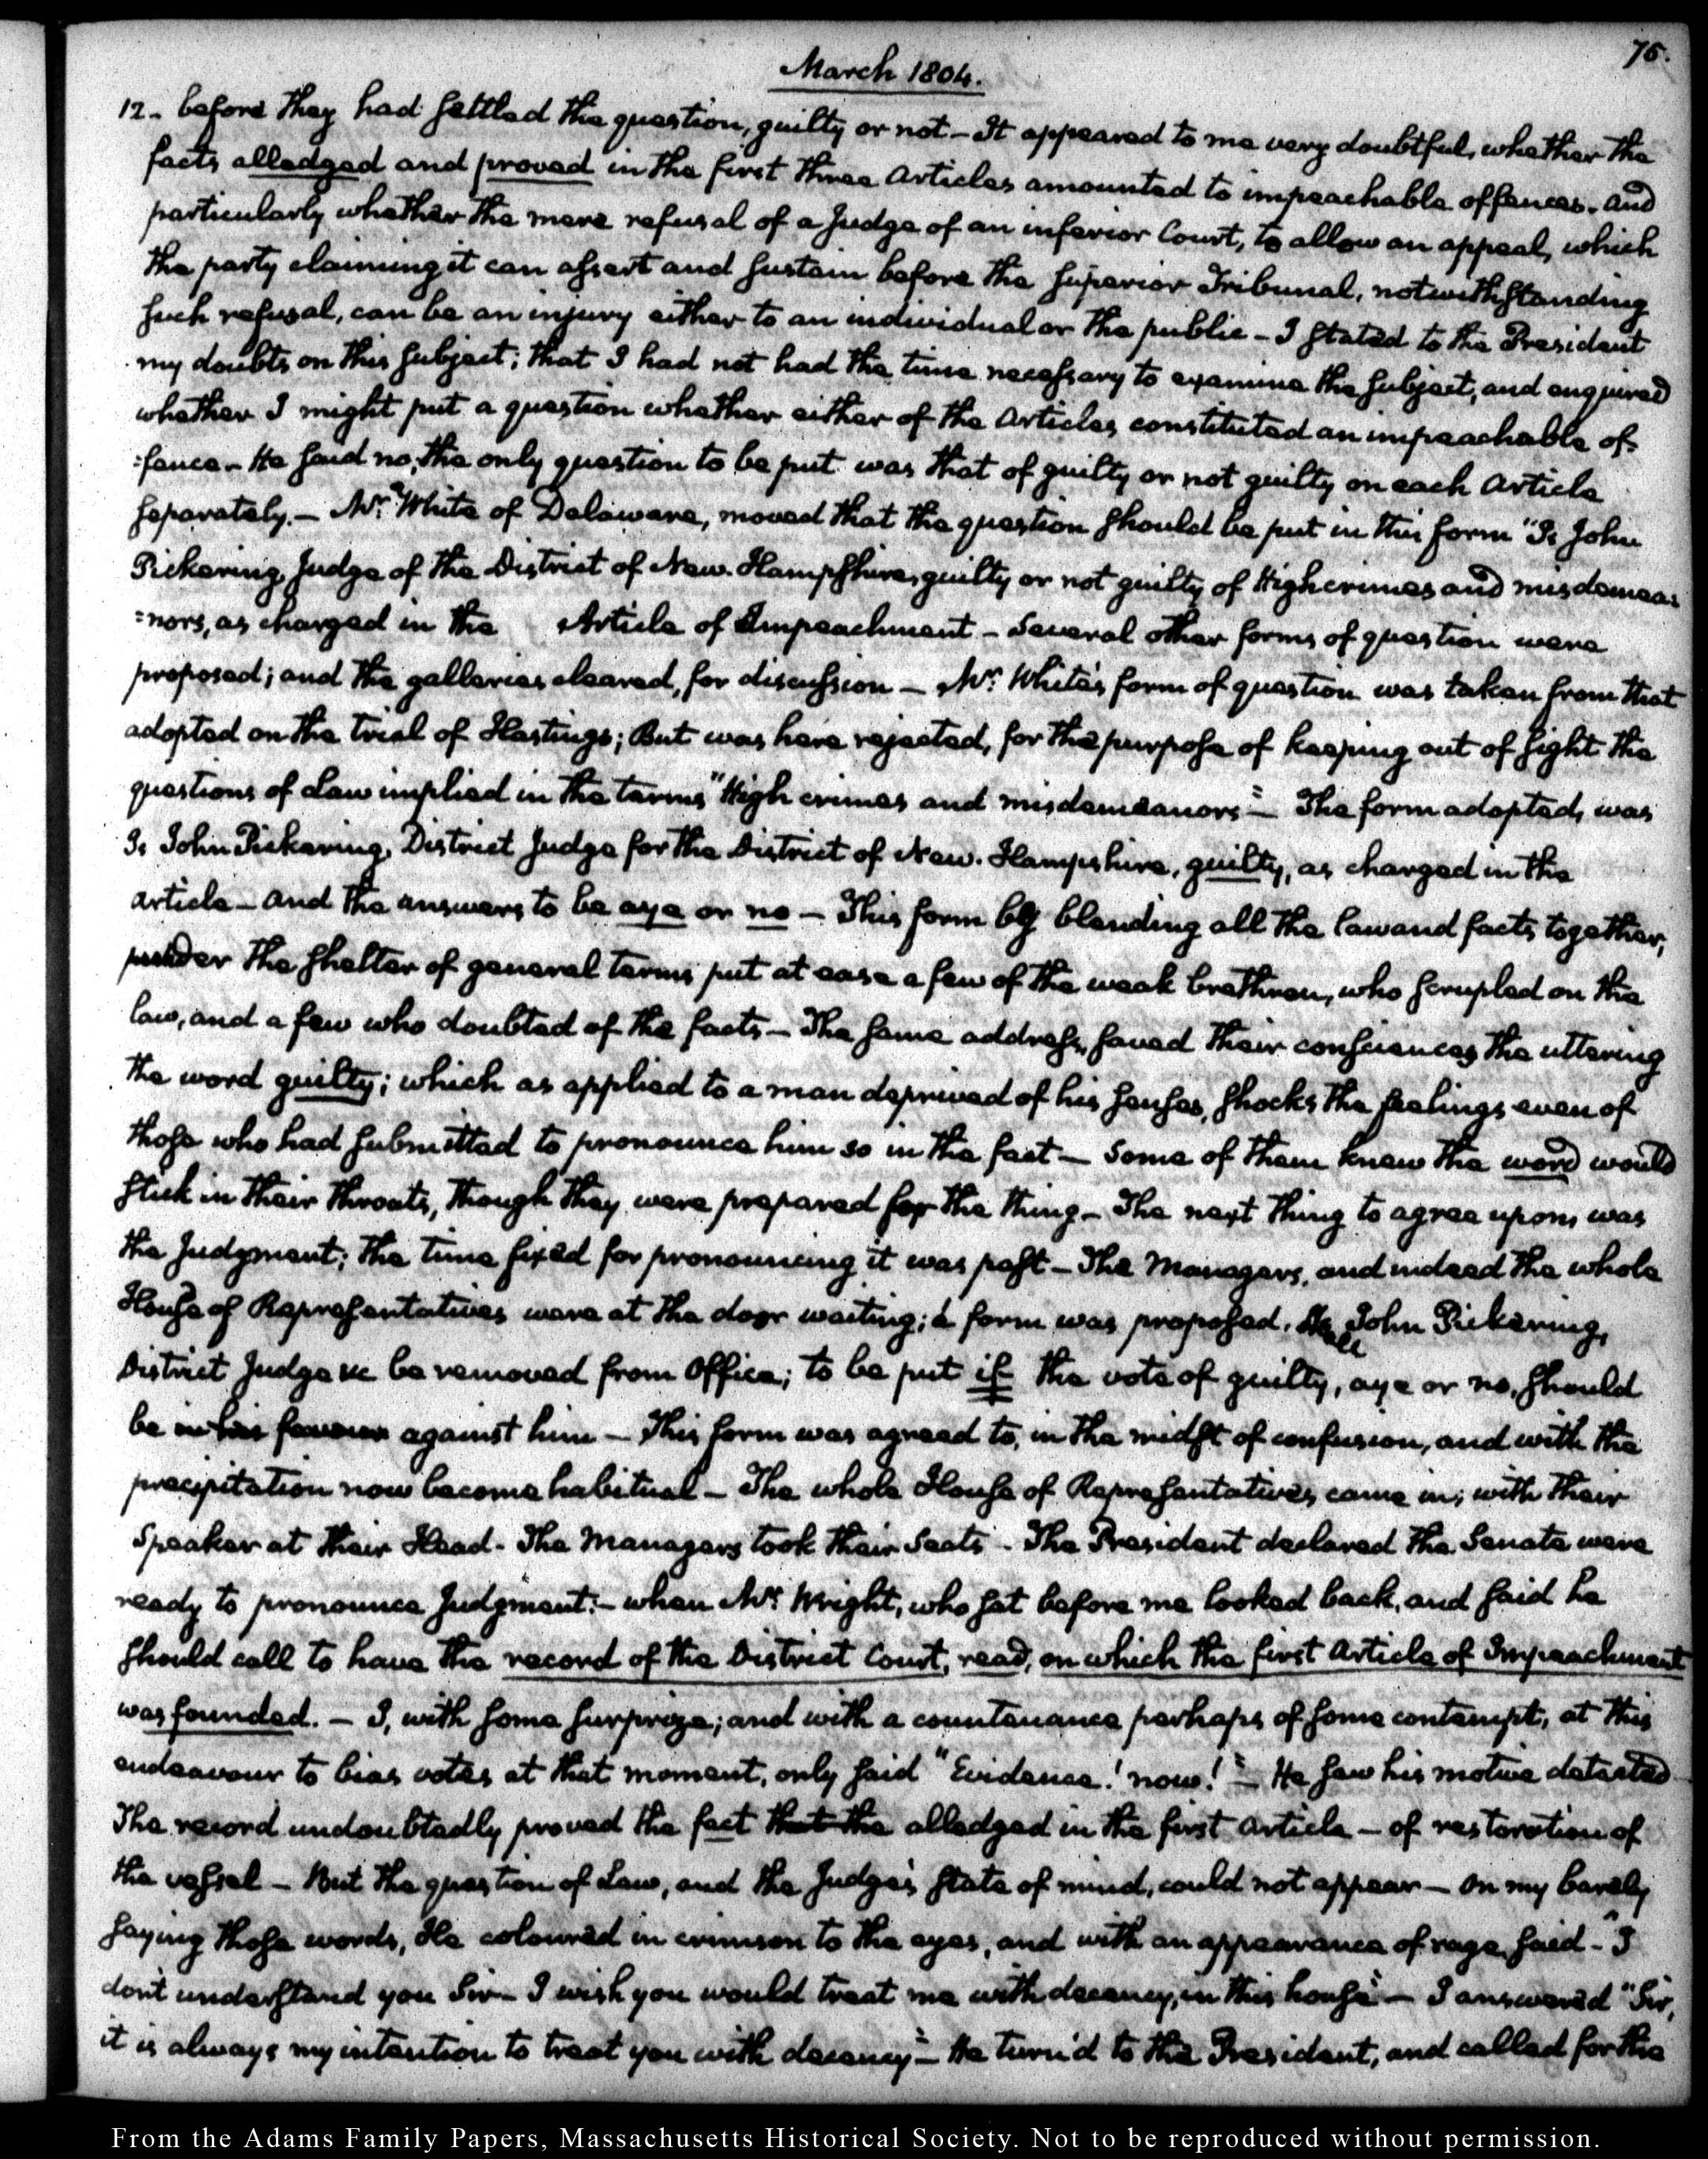 75.
March 1804.
12- before they had settled the question, guilty or not - It appeared to me very doubtful, whether the
facts alledged and proved in the first three Articles amounted to impeachable offences. and
particularly whether the mere refusal of a Judge of an inferior Court, to allow an appeal, which
the party claiming it can assert and sustain before the superior Tribunal, notwithstanding
such refusal, can be an injury either to an individual or the public - I stated to the President
my doubts on this subject; that I had not had the time necessary to examine the subject, and enquired
whether I might put a question whether either of the Articles constituted an impeachable of-
:fence - He said no, the only question to be put was that of guilty or not guilty on each Article
separately. - Mr. White of Delaware, moved that the question should be put in this form "Is John
Pickering Judge of the District of New-Hampshire, guilty or not guilty of High crimes and misdemea:
=nors, as charged in the Article of Impeachment - Several other forms of question were
proposed; and the galleries cleared, for discussion - Mr. White's form of question was taken from that
adopted on the trial of Hastings; But was here rejected, for the purpose of keeping out of sight the
questions of Law implied in the terms "High crimes and misdemeanors" - The form adopted, was
Is John Pickering, District Judge for the District of New-Hampshire, guilty, as charged in the
article - and the answers to be aye or no - This form by blending all the law and facts together,
under the shelter of general terms put at ease a few of the weak brethren, who scrupled on the
law, and a few who doubted of the facts - The same address, saved their consciences the uttering
the word guilty; which as applied to a man deprived of his senses, shocks the feelings even of
those who had submitted to pronounce him so in the fact - Some of them knew the word would
stick in their throats, though they were prepared for the thing - The next thing to agree upon, was
the Judgment; the time fixed for pronouncing it was past - The Managers, and indeed the whole
House of Representatives were at the door waiting; a form was proposed. Shall John Pickering,
District Judge &c be removed from Office; to be put if the vote of guilty, aye or no, should
be in his favour against him - This form was agreed to, in the midst of confusion, and with the
precipitation now become habitual - The whole House of Representatives came in; with their
Speaker at their Head. The Managers took their Seats - The President declared the Senate were
ready to pronounce Judgment: - when Mr. Wright, who sat before me looked back, and said he
should call to have the record of the District Court, read, on which the first Article of Impeachment
was founded. - I, with some surprize; and with a countenance perhaps of some contempt, at this
endeavour to bias votes at that moment, only said "Evidence! now!" - He saw his motive detected
The record undoubtedly proved the fact that the alledged in the first article - of restoration of
the vessel - But the question of Law, and the Judge's state of mind, could not appear - On my barely
saying those words, He coloured in crimson to the eyes, and with an appearance of rage, said - "I
don't understand you Sir - I wish you would treat me with decency, in this house" - I answered "Sir,
it is always my intention to treat you with decency" - He turn'd to the President, and called for the
From the Adams Family Papers, Massachusetts Historical Society. Not to be reproduced without permission.